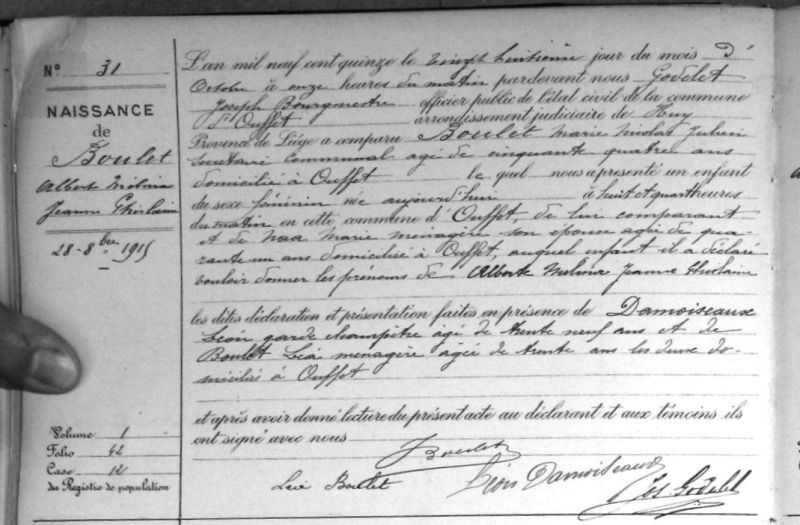 N° 31
NAISSANCE
de
Boulet
Alberte Melina
Jeanne Ghislaine
28-8bre 1915
Volume 1
Folio 42
Case 12
du Registre de population
L'an mil neuf cent quinze le vingt huitième jour du mois d'
Octobre à onze heures du matin pardevant nous Godelet
Joseph Bourgmestre officier public de l'état civil de la commune
d'Ouffet arrondissement judiciaire de Huy
Province de Liége a comparu Boulet Marie Nicolas Julien
Secrétaire communal agé de cinquante quatre ans
domicilié à Ouffet le quel nous a présenté un enfant
du sexe féminin née aujourd'hui à huit et quart heures
du matin en cette commune d'Ouffet, de lui comparant
et de Marie menagère son épouse agée de qua-
rante un ans domiciliée à Ouffet, auquel enfant il a déclaré
vouloir donner les prénoms de Alberte Melina Jeanne Ghislaine
les dites déclaration et présentation faites en présence de Damoiseaux
Léon garde champêtre agé de trente neuf ans et de
Boulet Léa menagère agée de trente ans les deux do-
miciliés à Ouffet
et après avoir donné lecture du présent acte au déclarant et aux témoins ils
ont signé avec nous
J Boulet
Léa Boulet Léon Damoiseaux Jos Godelet